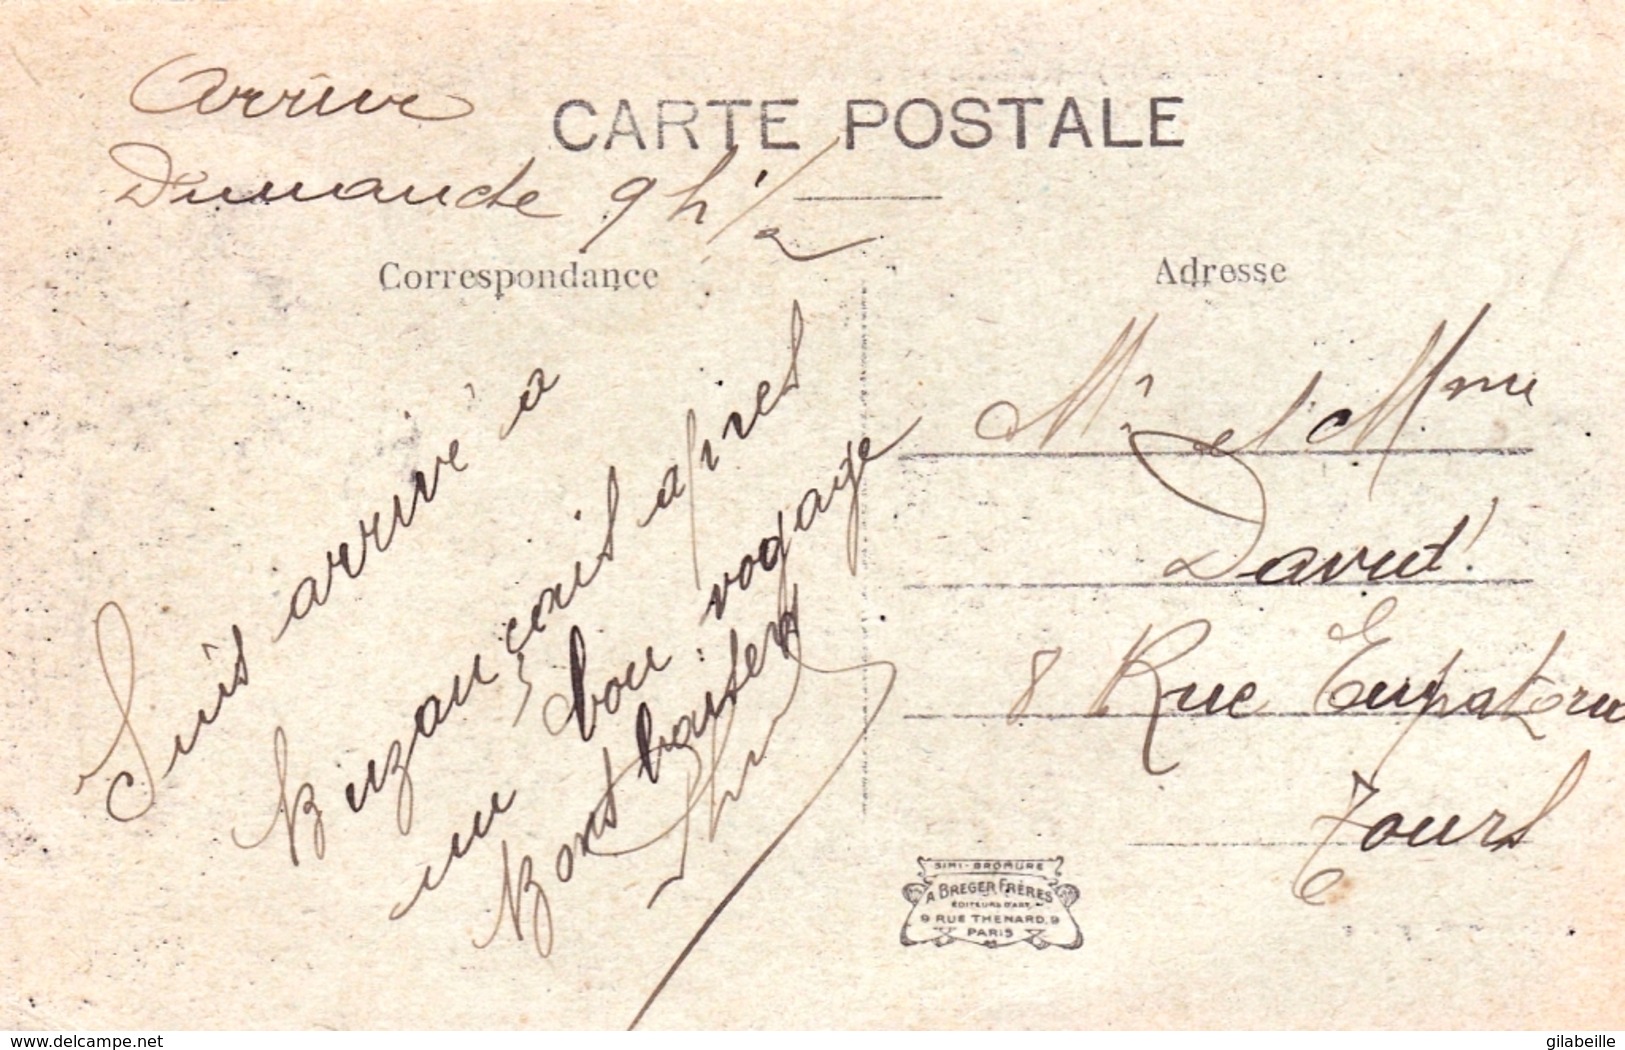 Arrive
Dimanche 9 h 1/2
CARTE POSTALE
Correspondance
Suis arrivé a
Buzançais apres
un bon voyage
Bons baisers
Adresse
Mr et Mme
David
8 Rue Eupatoria
Tours
SIMI-BROMURE
A BREGER FRÈRES
ÉDITEURS D'ART
9 RUE THENARD, 9
PARIS
www.delcampe.net
gilabeille